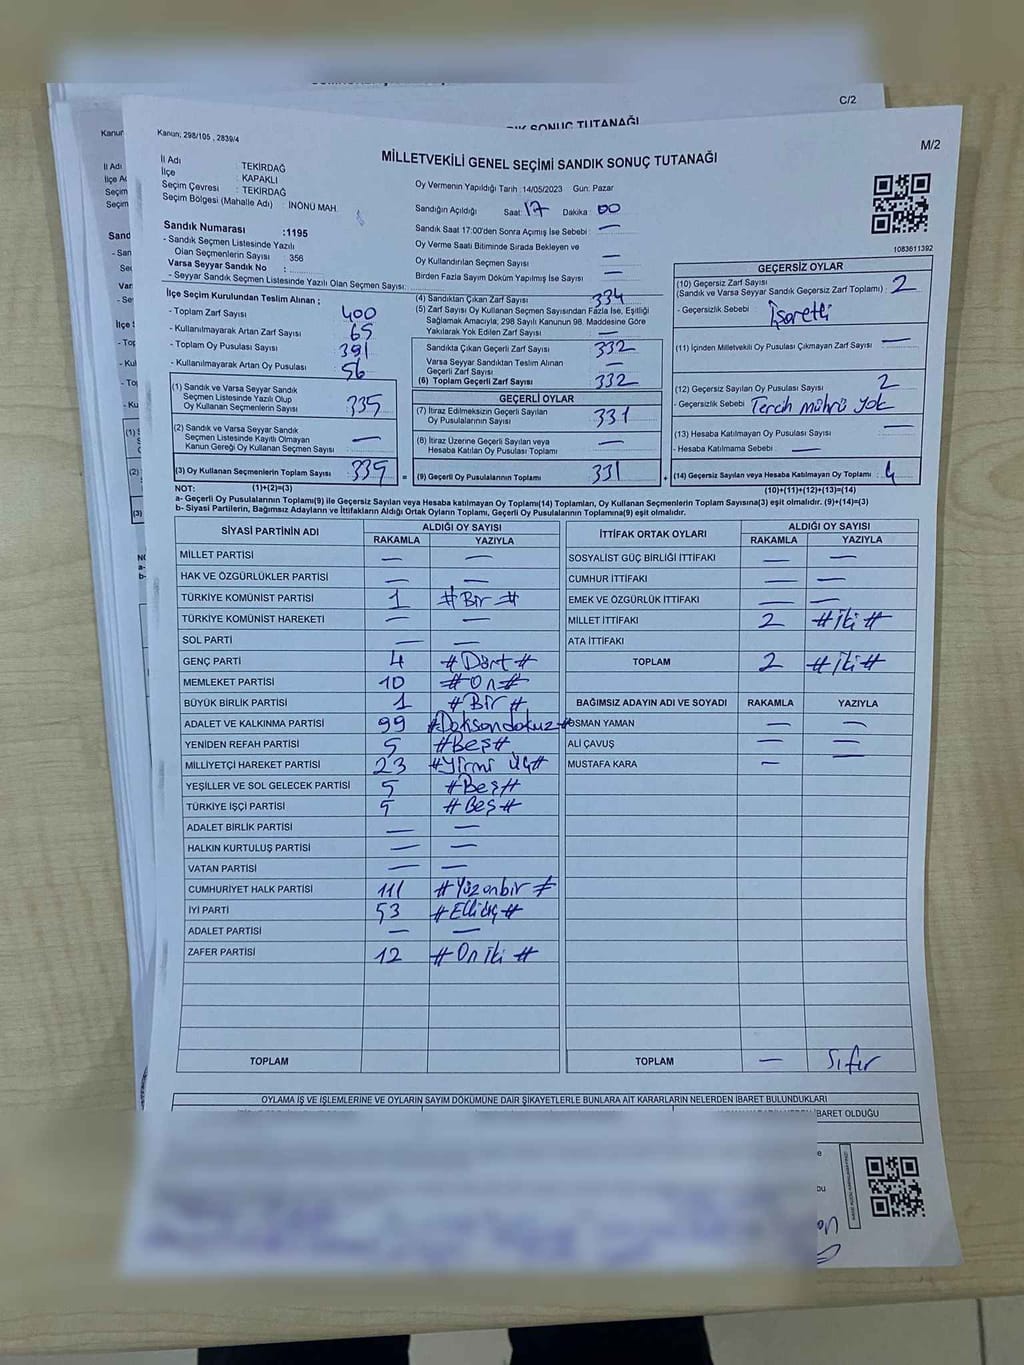 C/2
SONUÇ TUTANAĞI
Kanun; 298/105 , 2839/4
M/2
MİLLETVEKİLİ GENEL SEÇİMİ SANDIK SONUÇ TUTANAĞI
İl Adı : TEKİRDAĞ
İlçe : KAPAKLI
Seçim Çevresi : TEKİRDAĞ
Seçim Bölgesi (Mahalle Adı) : İNÖNÜ MAH.
Oy Vermenin Yapıldığı Tarih :14/05/2023 Gün: Pazar
Sandığın Açıldığı Saat: 17 Dakika: 00
Sandık Saat 17:00'den Sonra Açılmış İse Sebebi : —
Oy Verme Saati Bitiminde Sırada Bekleyen ve
Oy Kullandırılan Seçmen Sayısı —
Birden Fazla Sayım Döküm Yapılmış İse Sayısı —
1083611392
Sandık Numarası :1195
- Sandık Seçmen Listesinde Yazılı
Olan Seçmenlerin Sayısı : 356
Varsa Seyyar Sandık No :
- Seyyar Sandık Seçmen Listesinde Yazılı Olan Seçmen Sayısı:
İlçe Seçim Kurulundan Teslim Alınan ;
- Toplam Zarf Sayısı 400
- Kullanılmayarak Artan Zarf Sayısı 65
- Toplam Oy Pusulası Sayısı 391
- Kullanılmayarak Artan Oy Pusulası 56
(1) Sandık ve Varsa Seyyar Sandık
Seçmen Listesinde Yazılı Olup
Oy Kullanan Seçmenlerin Sayısı 335
(2) Sandık ve Varsa Seyyar Sandık
Seçmen Listesinde Kayıtlı Olmayan
Kanun Gereği Oy Kullanan Seçmen Sayısı —
(3) Oy Kullanan Seçmenlerin Toplam Sayısı 335
(1)+(2)=(3)
(4) Sandıktan Çıkan Zarf Sayısı 334
(5) Zarf Sayısı Oy Kullanan Seçmen Sayısından Fazla İse, Eşitliği
Sağlamak Amacıyla; 298 Sayılı Kanunun 98. Maddesine Göre
Yakılarak Yok Edilen Zarf Sayısı —
Sandıkta Çıkan Geçerli Zarf Sayısı 332
Varsa Seyyar Sandıktan Teslim Alınan
Geçerli Zarf Sayısı —
(6) Toplam Geçerli Zarf Sayısı 332
GEÇERLİ OYLAR
(7) İtiraz Edilmeksizin Geçerli Sayılan
Oy Pusulalarının Sayısı : 331
(8) İtiraz Üzerine Geçerli Sayılan veya
Hesaba Katılan Oy Pusulası Toplamı —
(9) Geçerli Oy Pusulalarının Toplamı : 331
GEÇERSİZ OYLAR
(10) Geçersiz Zarf Sayısı
(Sandık ve Varsa Seyyar Sandık Geçersiz Zarf Toplamı) : 2
- Geçersizlik Sebebi : İşaretli
(11) İçinden Milletvekili Oy Pusulası Çıkmayan Zarf Sayısı : —
(12) Geçersiz Sayılan Oy Pusulası Sayısı : 2
- Geçersizlik Sebebi : Tercih mührü yok
(13) Hesaba Katılmayan Oy Pusulası Sayısı : —
- Hesaba Katılmama Sebebi : —
(14) Geçersiz Sayılan veya Hesaba Katılmayan Oy Toplamı : 4
(10)+(11)+(12)+(13)=(14)
NOT:
a- Geçerli Oy Pusulalarının Toplamı(9) ile Geçersiz Sayılan veya Hesaba katılmayan Oy Toplamı(14) Toplamları, Oy Kullanan Seçmenlerin Toplam Sayısına(3) eşit olmalıdır. (9)+(14)=(3)
b- Siyasi Partilerin, Bağımsız Adayların ve İttifakların Aldığı Ortak Oyların Toplamı, Geçerli Oy Pusulalarının Toplamına(9) eşit olmalıdır.
SİYASİ PARTİNİN ADI ALDIĞI OY SAYISI
RAKAMLA YAZIYLA
MİLLET PARTİSİ — —
HAK VE ÖZGÜRLÜKLER PARTİSİ — —
TÜRKİYE KOMÜNİST PARTİSİ 1 #Bir#
TÜRKİYE KOMÜNİST HAREKETİ — —
SOL PARTİ — —
GENÇ PARTİ 4 #Dört#
MEMLEKET PARTİSİ 10 #On#
BÜYÜK BİRLİK PARTİSİ 1 #Bir#
ADALET VE KALKINMA PARTİSİ 99 #Doksandokuz#
YENİDEN REFAH PARTİSİ 5 #Beş#
MİLLİYETÇİ HAREKET PARTİSİ 23 #Yirmi Üç#
YEŞİLLER VE SOL GELECEK PARTİSİ 5 #Beş#
TÜRKİYE İŞÇİ PARTİSİ 5 #Beş#
ADALET BİRLİK PARTİSİ — —
HALKIN KURTULUŞ PARTİSİ — —
VATAN PARTİSİ — —
CUMHURİYET HALK PARTİSİ 111 #Yüzonbir#
İYİ PARTİ 53 #Elliüç#
ADALET PARTİSİ — —
ZAFER PARTİSİ 12 #On iki#
TOPLAM
İTTİFAK ORTAK OYLARI ALDIĞI OY SAYISI
RAKAMLA YAZIYLA
SOSYALİST GÜÇ BİRLİĞİ İTTİFAKI — —
CUMHUR İTTİFAKI — —
EMEK VE ÖZGÜRLÜK İTTİFAKI — —
MİLLET İTTİFAKI 2 #İki#
ATA İTTİFAKI
TOPLAM 2 #İki#
BAĞIMSIZ ADAYIN ADI VE SOYADI RAKAMLA YAZIYLA
OSMAN YAMAN — —
ALİ ÇAVUŞ — —
MUSTAFA KARA — —
TOPLAM — Sıfır
OYLAMA İŞ VE İŞLEMLERİNE VE OYLARIN SAYIM DÖKÜMÜNE DAİR ŞİKAYETLERLE BUNLARA AİT KARARLARIN NELERDEN İBARET BULUNDUKLARI
İBARET OLDUĞU